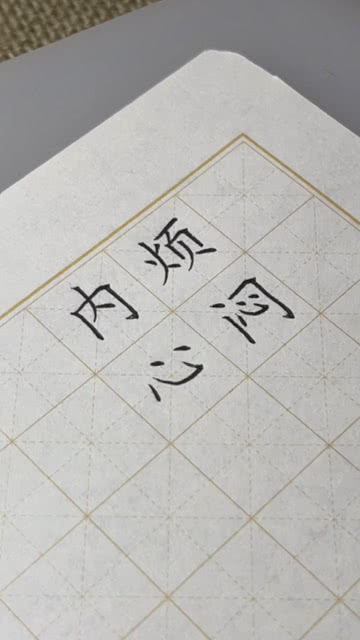 内心
烦闷